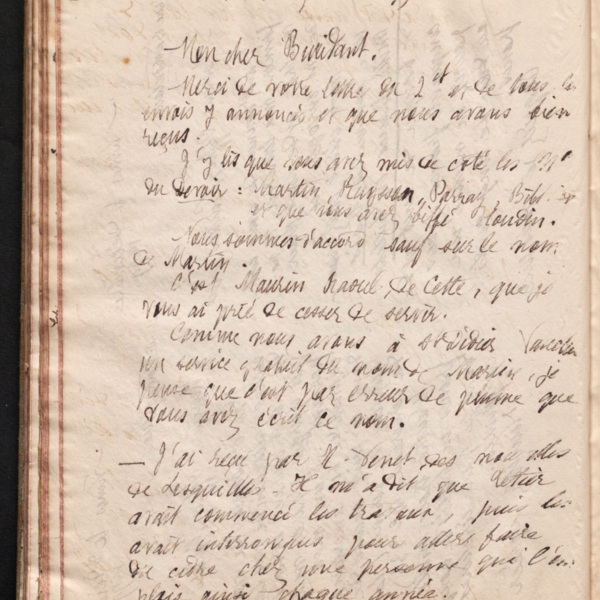 Mon cher Buridant.
Merci de votre lettre du 2 et et de tous les
envois y annoncés et que nous avons bien
reçus.
J'y lis que vous avez mis de coté les Nos
du Devoir : Martin, Parrat, Bibl.
et que vous avez biffé Houdin.
Nous sommes d'accord sauf sur le nom
de Martin.
C'est Maurin Raoul, de Cette, que je
vous ai prié de cesser de servir.
Comme nous avons à St Didier
un service gratuit du nom de Martin, je
pense que c'est par erreur de plume que
vous avez écrit ce nom.
— J'ai reçu par M. des nouvelles
de Lesquilles. Il m'a dit que
avait commencé les travaux, puis les
avait interrompus pour aller faire
du cidre chez une personne qui l'em
ploie ainsi chaque année.